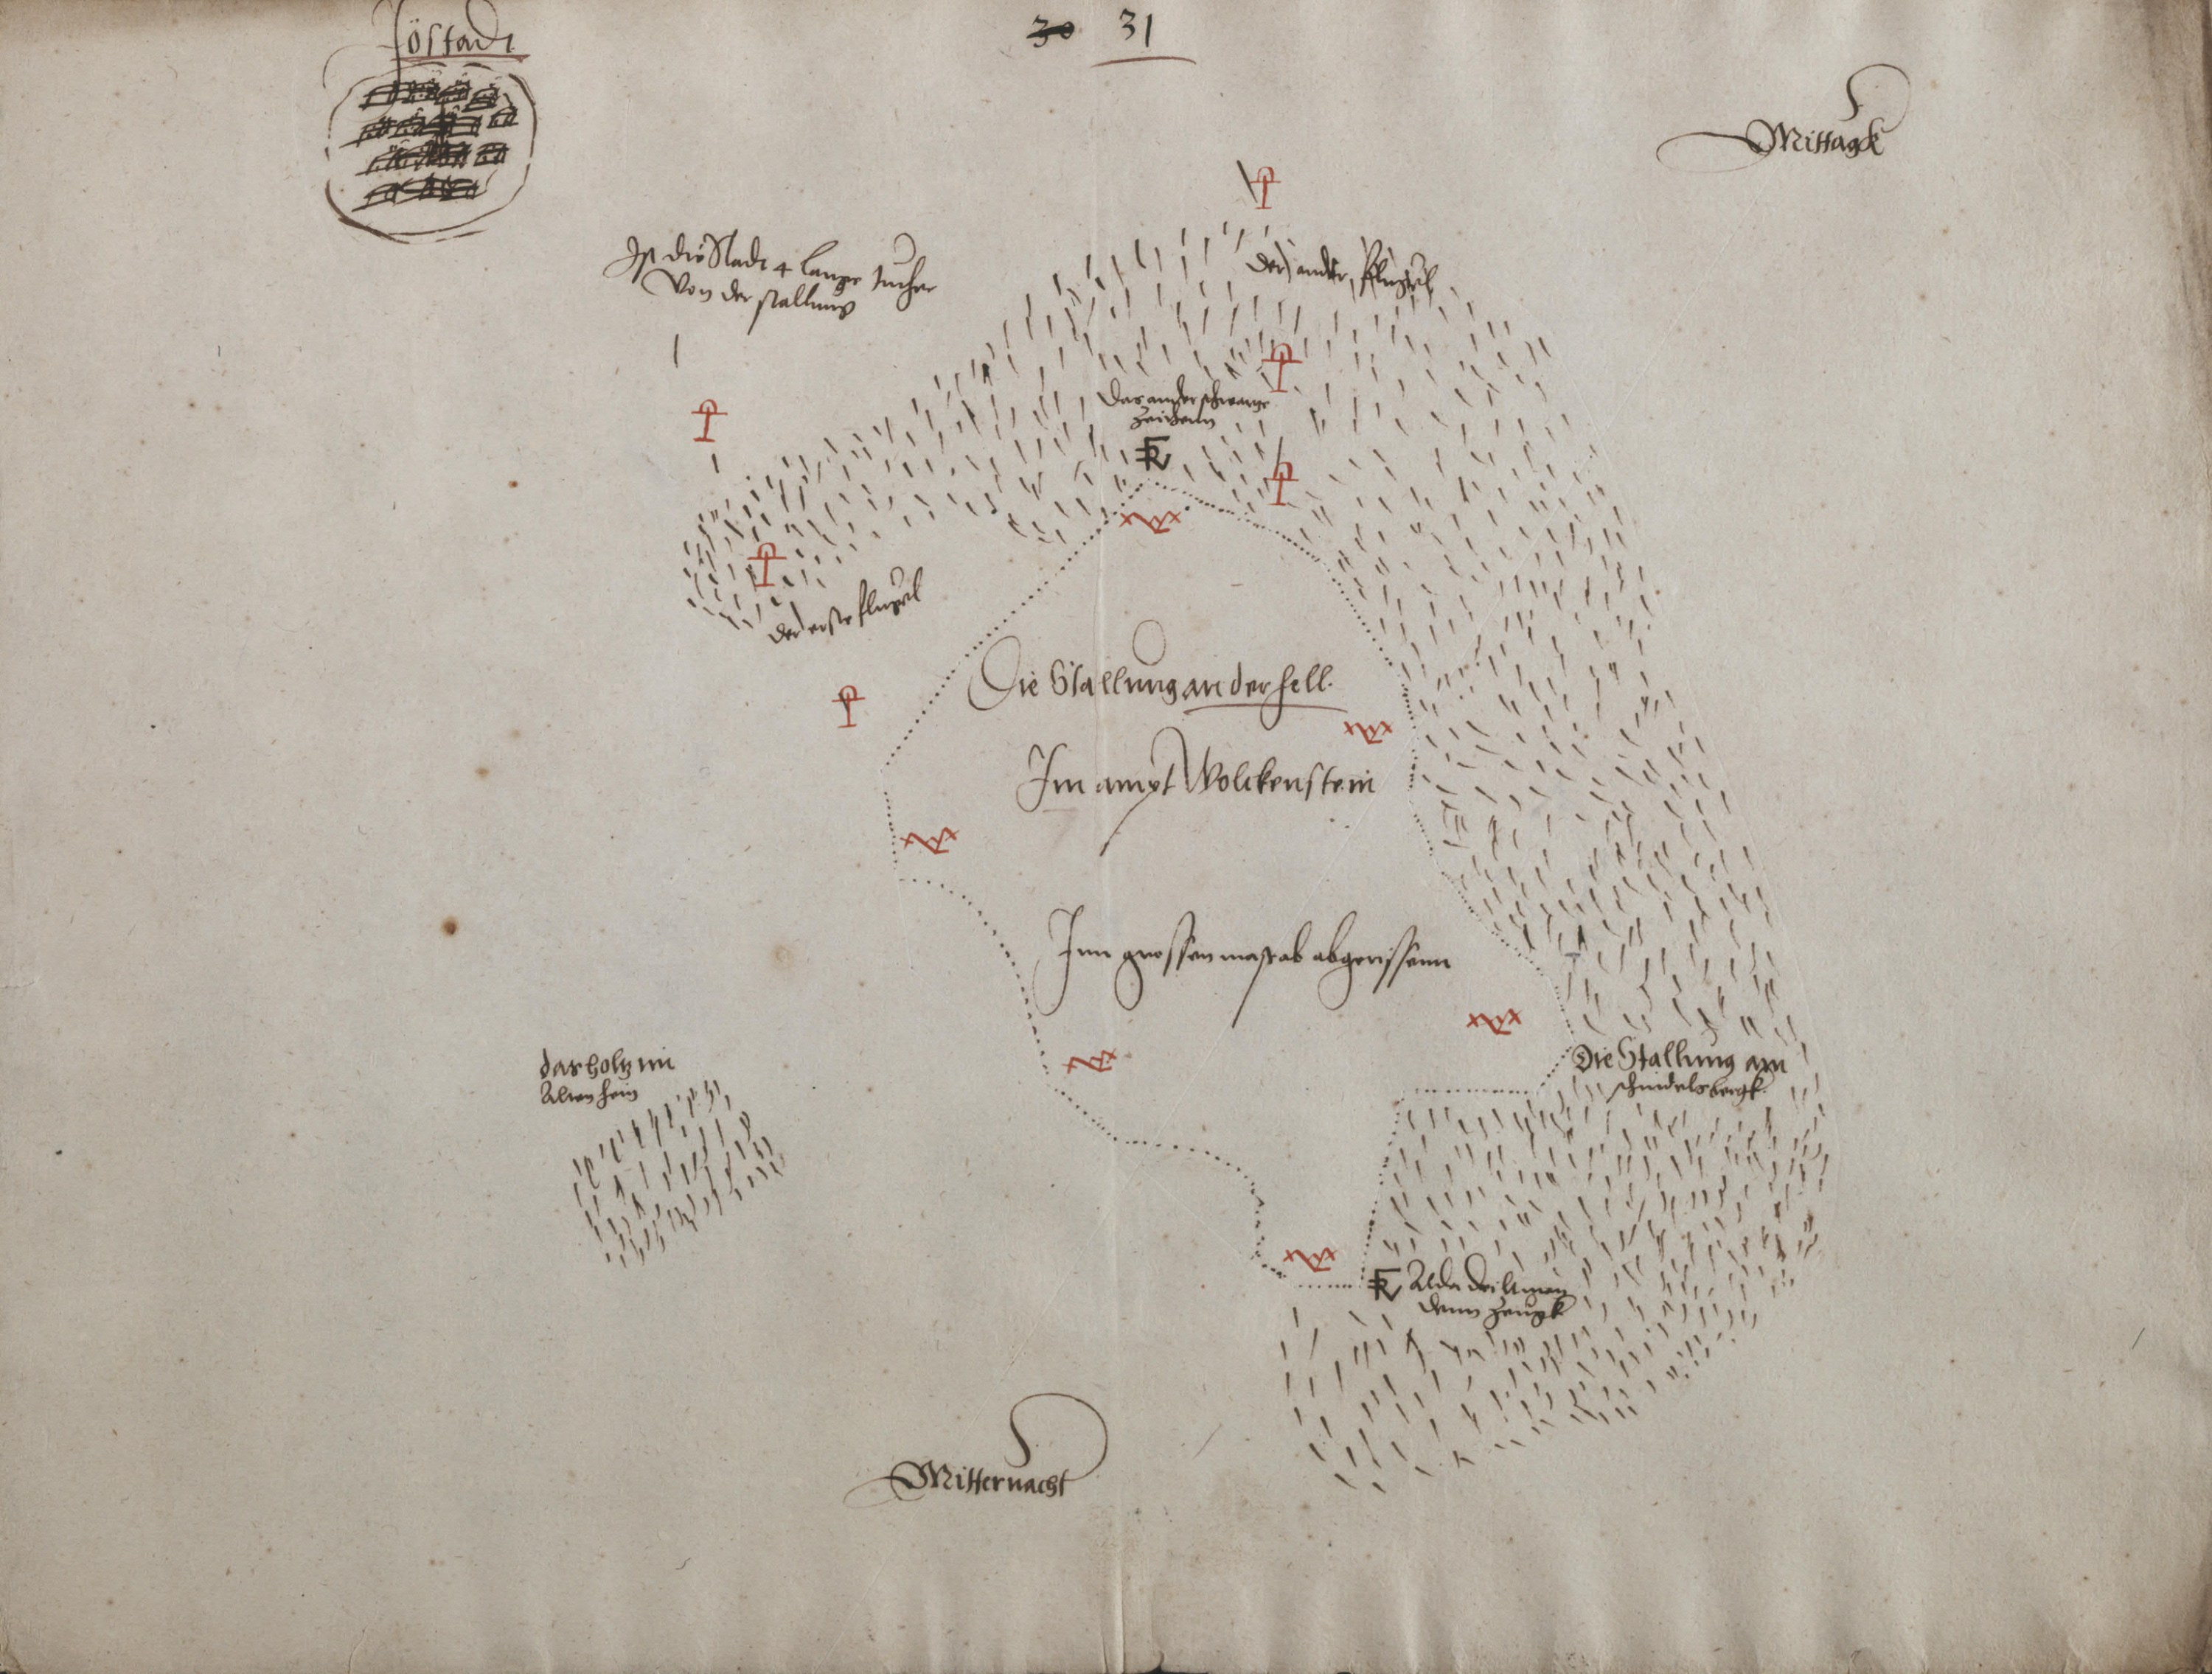 Jöstadt
30 31
Mittagk
Ist die Stadt 4 lange tucher
Von der stallung
Der ander flugel
Das ander schwartze
zeichenn
Der erste flugel
Die Stallung an der hell.
Im ampt Wolckenstein
Inn grossen masstab abgerissenn
das holtz im
Die Stallung am
schindelsbergk
denn zeugk
Mitternacht